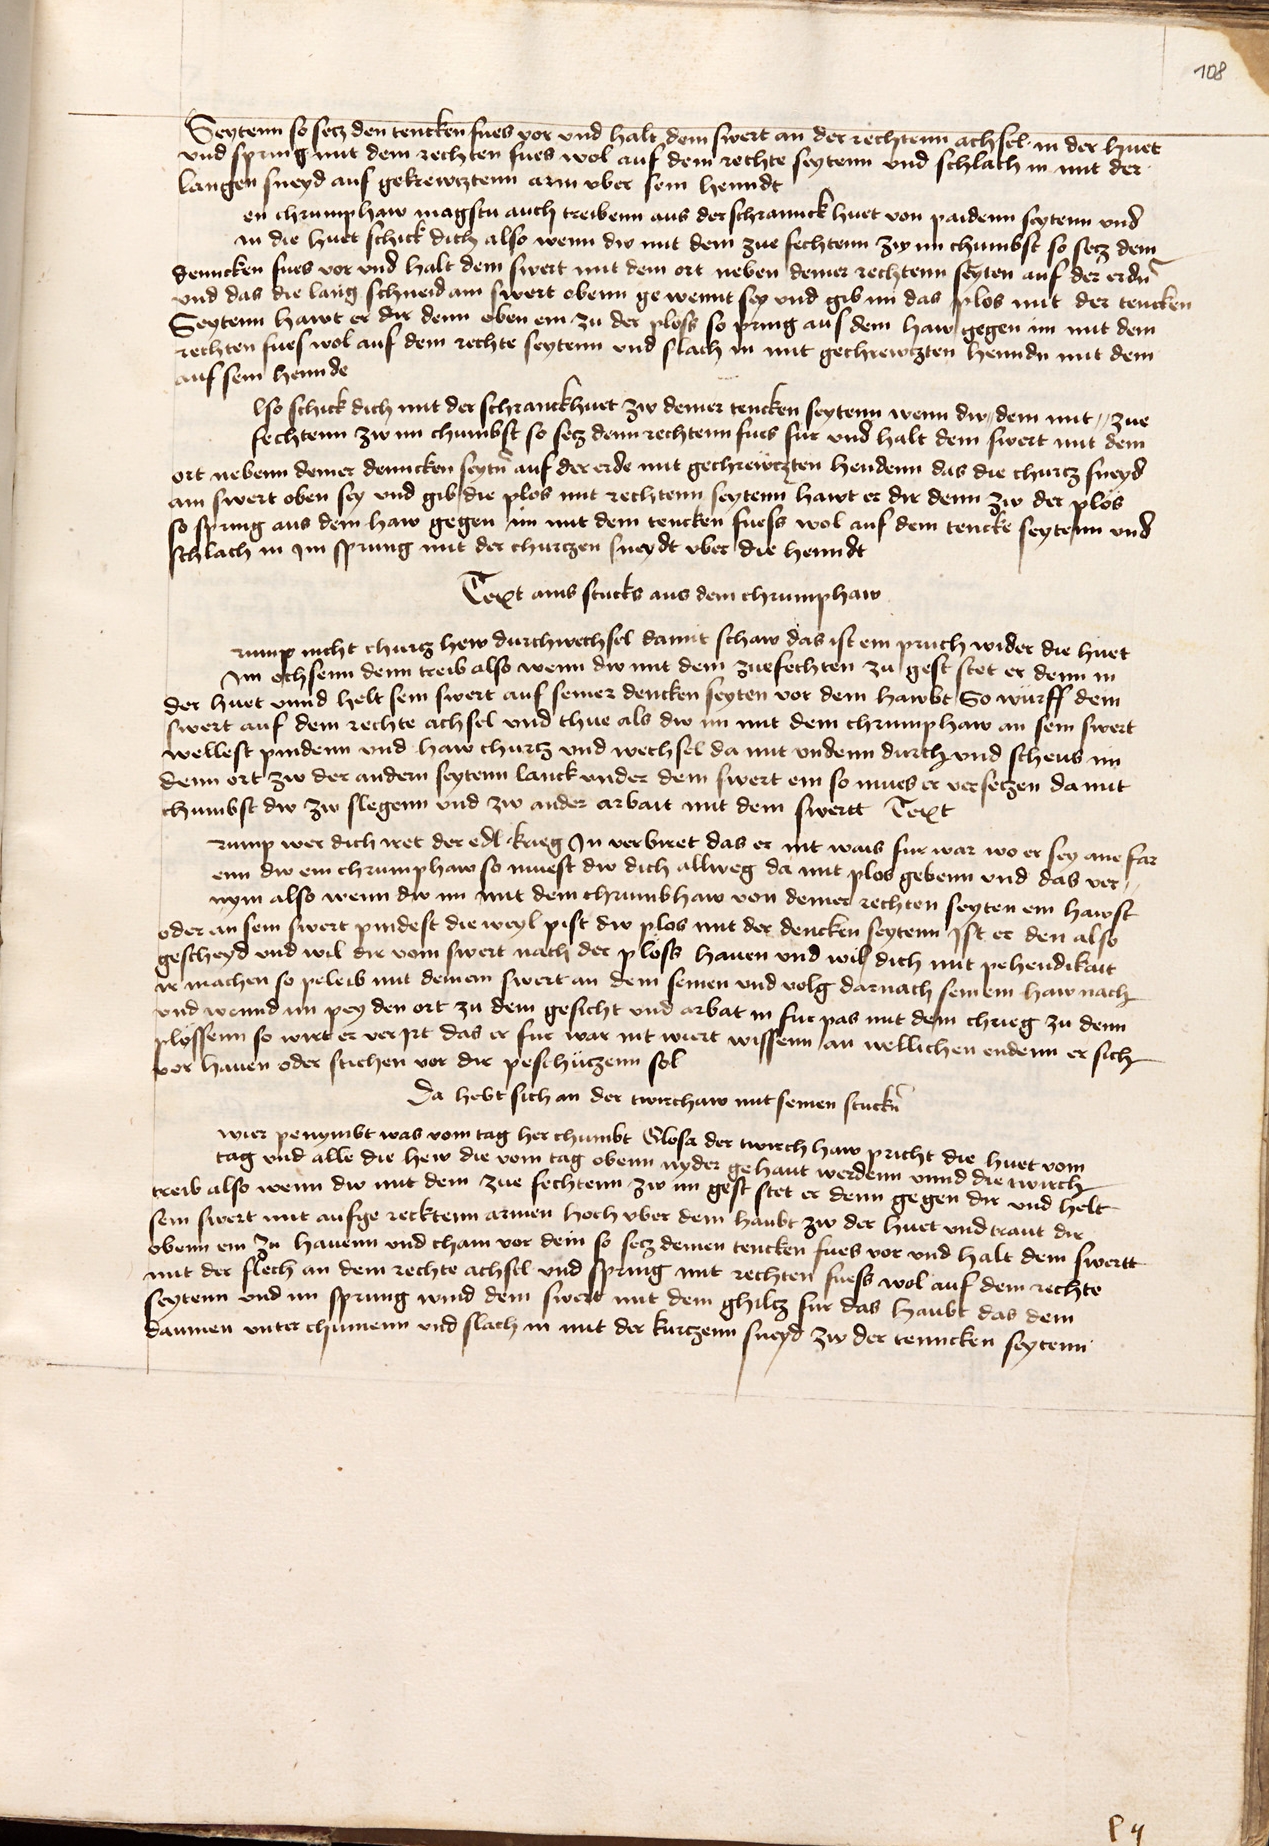 108
Seytenn so secz den tencken fues vor vnd halt dein swert an der rechtenn achsel in der huet
vnd spring mit dem rechten fues wol auf dein rechte seytenn vnd schlach in mit der
langen sneyd aus gekrewcztenn arm vber sein henndt
en chrumphaw magstu auch treibenn aus der schrannckhuet von paidenn seytenn vnd
in die huet schick dich also wenn dw mit dem zue fechtenn zw im chumbst so secz dein
denncken fues vor vnd halt dein swert mit dem ort neben deiner rechtenn seyten auf der erdn
vnd das die lang schneid am swert obenn gewennt sey vnd gib im das plos mit der tencken
Seytenn hawt er dir denn oben ein zu der ploss so spring aus dem haw gegen im mit dem
rechten fues wol auf dein rechte seytenn vnd slach in mit gechrewczten henndn mit dem
auf sein hennde
lso schick dich mit der schranckhuet zw deiner tencken seytenn wenn dw dem mit zue
fechtenn zw im chumbst so secz denn rechtenn fues fur vnd halt dein swert mit dem
ort nebenn deiner denncken seytn auf der erde mit gechrewczten hendenn das die churcz sneyd
am swert oben sey vnd gib die plos mit rechtenn seytenn hawt er dir denn zw der plos
so spring aus dem haw gegen im mit dem tencken fuess wol auf dein tencke seytenn vnd
schlach in Im sprung mit der churczen sneydt vber die henndt
Text ains stucks aus dem chrumphaw
rump nicht churcz hew durchwechsel damit schaw das ist ein pruch wider die huet
Im ochsenn denn treib also wenn dw mit dem zuefechten zu gest stet er denn in
der huet vnnd helt sein swert auf seiner dencken seyten vor dem hawbt So wurff dein
swert auf dein rechte achsel vnd thue als dw im mit dem chrumphaw an sein swert
wellest pindenn vnd haw churcz vnd wechsel da mit vndenn durch vnd scheus im
denn ort zw der andern seytenn lanck vnder dem swert ein so mues er verseczen da mit
chumbst dw zw slegenn vnd zw ander arbait mit dem swertt Text
rump wer dich iret der edl krieg In verbiret das er nit wais fur war wo er sey ane far
enn dw ein chrumphaw so muest dw dich allweg da mit plos gebenn vnd das ver
nym also wenn dw im mit dem chrumbhaw von deiner rechten seyten ein hawst
oder an sein swert pindest die weyl pist dw plos mit der dencken seytenn Ist er den also
gescheyd vnd wil dir vom swert nach der ploss hauen vnd wil dich mit pehendikait
ir machen so peleib mit deinem swert an dem seinen vnd volg darnach seinem haw nach
vnd wennd im pey den ort zu dem gesicht vnd arbat in fur pas mit dem chrieg zu denn
plossenn so wirt er ver Irt das er fur war nit wiert wissenn an wellichen endenn er sich
vor hauen oder stichen vor dir peschüczenn sol
Da hebt sich an der twirchaw mit seinen stuckn
wier penymbt was vom tag her chumbt Glosa der twirch haw pricht die huet vom
tag vnd alle die hew die vom tag obenn nyder gehaut werdenn vnnd die twirch
treib also wenn dw mit dem zue fechtenn zw im gest stet er denn gegen dir vnd helt
sein swert mit aufge recktenn armen hoch vber dem haubt zw der huet vnd traut dir
obenn ein zu hauenn vnd cham vor dem so secz deinen tencken fues vor vnd halt dein swertt
mit der flech an dein rechte achsel vnd spring mit rechten fuess wol auf dein rechte
seytenn vnd im sprung wind dein swert mit dem ghilcz fur das haubt das dein
daumen vnter chumenn vnd slach in mit der kurczenn sneyd zw der tenncken seytenn